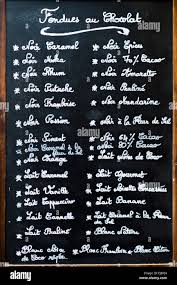 Fondues au Chocolat
Noir Caramel
Noir Epices
Noir Moka
Noir 70% Cacao
Noir Rhum
Noir Amaretto
Noir Pistache
Noir Praliné
Noir Framboise
Noir mandarine
Noir Passion
Noir à la Fleur de Sel
Noir Piment
Noir 64% Cacao
Noir Caramel à la
Noir 80% Cacao
Noir Orange
Lait Noix de Coco
Lait Caramel
Lait Gourmet
Lait Vanille
Lait
Lait Cappuccino
Lait Banane
Lait Cannelle
Lait Caramel à la Fleur de Sel
Lait Praliné
Blanc
Blanc Noix de
Coco
Blanc Framboise
Blanc Citron
alamy